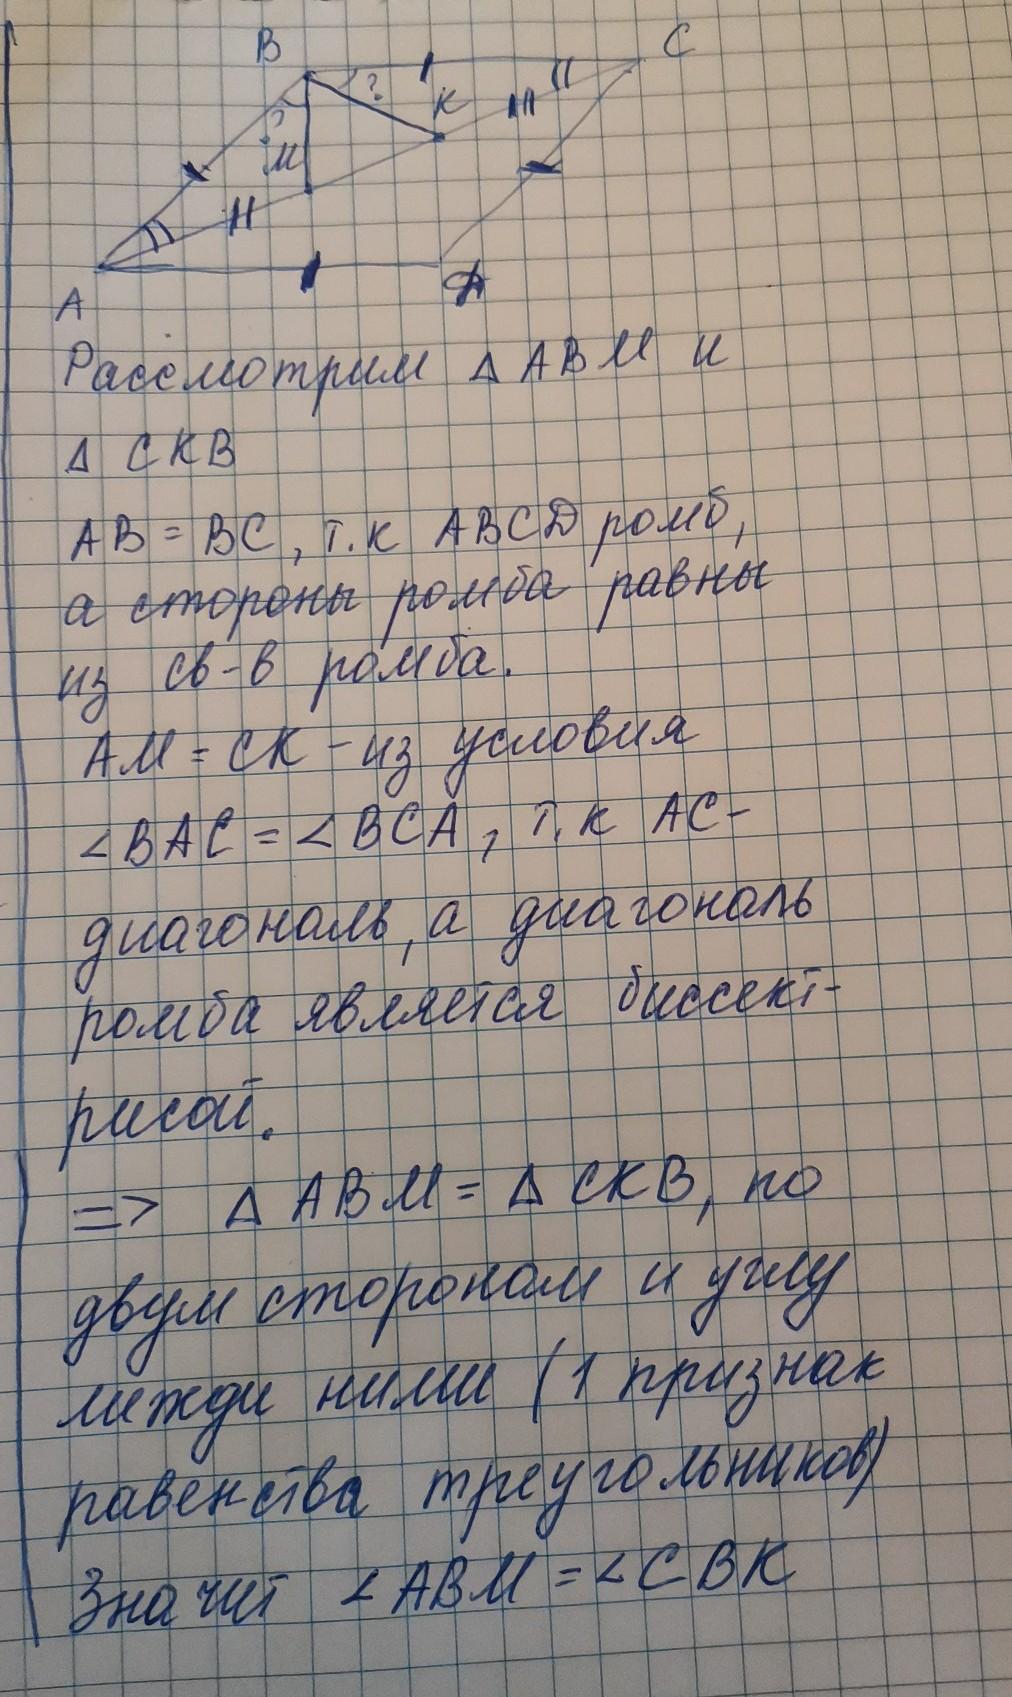 B
C
?
K
?
M
A
D
Рассмотрим Δ ABM и
Δ CKB
AB = BC, т.к ABCD ромб,
а стороны ромба равны
из св-в ромба.
AM = CK - из условия
∠BAC = ∠BCA, т.к AC-
диагональ, а диагональ
ромба является биссект-
рисой.
=> Δ ABM = Δ CKB, по
двум сторонам и углу
между ними (1 признак
равенства треугольников)
Значит ∠ABM = ∠CBK